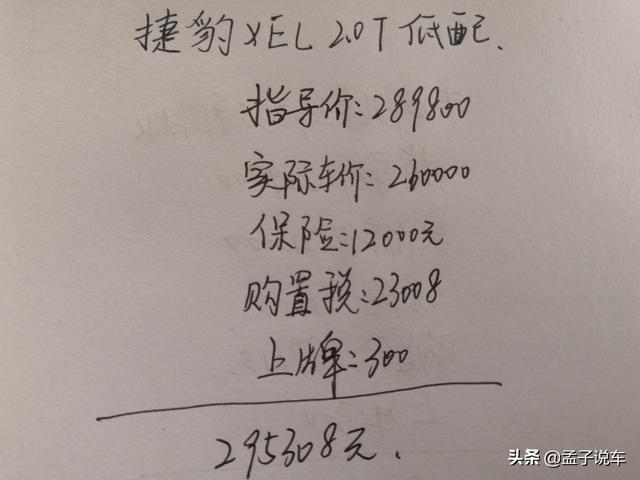 捷豹XEL 2.0T 低配.
指导价:289800
实际车价:260000
保险:12000元
购置税:23008
上牌:300
295308元.
头条 @孟子说车